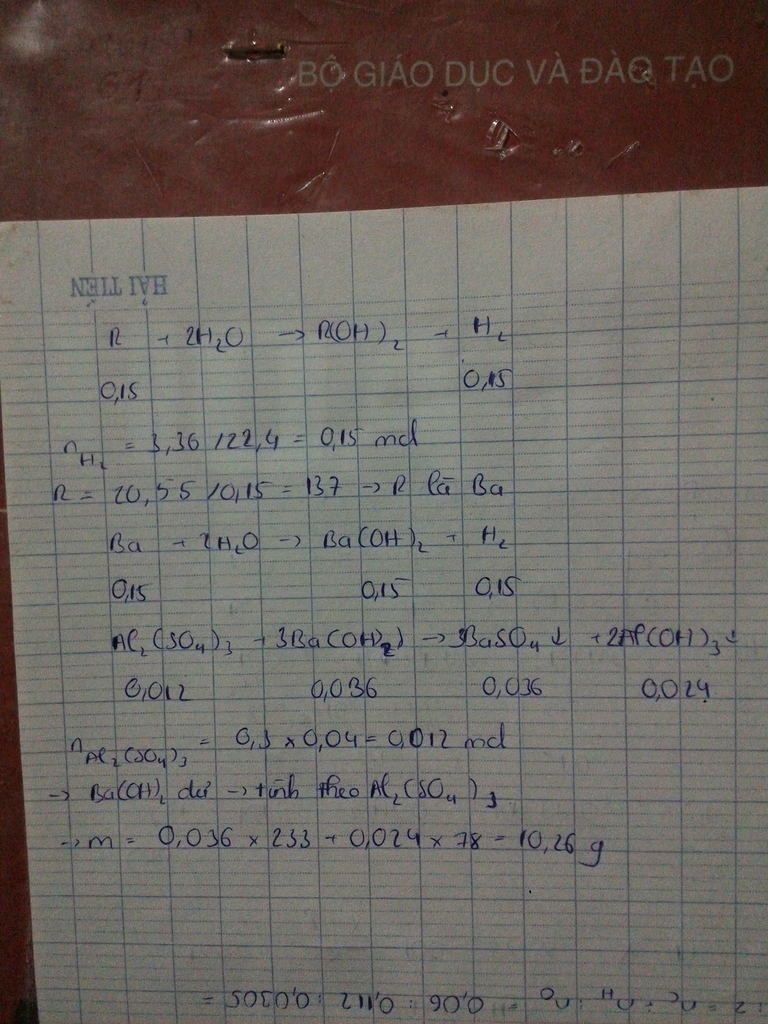 BỘ GIÁO DỤC VÀ ĐÀO TẠO
HẢI TIẾN
R + 2H₂O → R(OH)₂ + H₂
0,15 0,15
nH₂ = 3,36 / 22,4 = 0,15 mol
R = 20,55 / 0,15 = 137 → R là Ba
Ba + 2H₂O → Ba(OH)₂ + H₂
0,15 0,15 0,15
Al₂(SO₄)₃ + 3Ba(OH₂) → 3BaSO₄↓ + 2Al(OH)₃↓
0,012 0,036 0,036 0,024
nAl₂(SO₄)₃ = 0,3 × 0,04 = 0,012 mol
→ Ba(OH)₂ dư → tính theo Al₂(SO₄)₃
→ m = 0,036 × 233 + 0,024 × 78 = 10,26 g
: 2 = nC : nH : nO = 0,06 : 0,112 : 0,0305 =